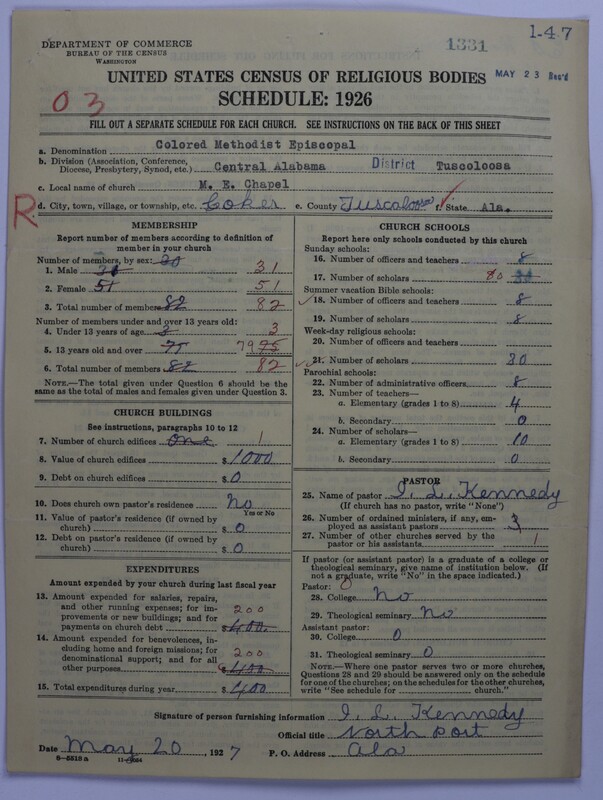 1-47
DEPARTMENT OF COMMERCE
BUREAU OF THE CENSUS
WASHINGTON
1331
MAY 23 Rec'd
UNITED STATES CENSUS OF RELIGIOUS BODIES
SCHEDULE: 1926
03
FILL OUT A SEPARATE SCHEDULE FOR EACH CHURCH. SEE INSTRUCTIONS ON THE BACK OF THIS SHEET
a. Denomination Colored Methodist Episcopal
b. Division (Association, Conference, Diocese, Presbytery, Synod, etc.) Central Alabama District Tuscoloosa
c. Local name of church M. E. Chapel
R
d. City, town, village, or township, etc. Coker e. County Tuscoloosa f. State Ala.
MEMBERSHIP
Report number of members according to definition of
member in your church
Number of members, by sex: 30
1. Male 31 31
2. Female 51 51
3. Total number of members 82 82
Number of members under and over 13 years old:
4. Under 13 years of age 3 3
5. 13 years old and over 75 79 75
6. Total number of members 82 82
NOTE.—The total given under Question 6 should be
same as the total of males and females given under Question 3.
CHURCH BUILDINGS
See instructions, paragraphs 10 to 12
7. Number of church edifices one 1
8. Value of church edifices $1000
9. Debt on church edifices $0
10. Does church own pastor's residence No
Yes or No
11. Value of pastor's residence (if owned by
church) $0
12. Debt on pastor's residence (if owned by
church) $0
EXPENDITURES
Amount expended by church during last fiscal year
13. Amount expended for salaries, repairs,
and other running expenses; for im-
provements or new buildings; and for 200
payments on church debt $400.
14. Amount expended for benevolences, in-
cluding home and foreign missions; for
denominational support; and for all 200
other purposes $400
15. Total expenditures during year $400
CHURCH SCHOOLS
Report here only schools conducted by this church
Sunday schools:
16. Number of officers and teachers 8
17. Number of scholars 80
Summer vacation Bible schools:
18. Number of officers and teachers 8
19. Number of scholars 8
Week-day religious schools:
20. Number of officers and teachers
21. Number of scholars 30
Parochial schools:
22. Number of administrative officers 8
23. Number of teachers—
a. Elementary (grades 1 to 8) 4
b. Secondary 0
24. Number of scholars—
a. Elementary (grades 1 to 8) 10
b. Secondary 0
PASTOR
25. Name of pastor I. L. Kennedy
(If church has no pastor, write "None")
26. Number of ordained ministers, if any, em-
ployed as assistant pastors 3
27. Number of other churches served by the
pastor or his assistants 1
If pastor (or assistant pastor) is a graduate of a college or
theological seminary, give name of institution below. (If
not a graduate, write "No" in the space indicated.)
Pastor: 0
28. College No
29. Theological seminary No
Assistant pastor:
30. College 0
31. Theological seminary 0
NOTE.—Where one pastor serves two or more churches,
Questions 28 and 29 should be answered only on the schedule
for one of the churches; on the schedules for the other churches,
write "See schedule for church."
Signature of person furnishing information I. L. Kennedy
Official title North port
Date May 20, 1927 P. O. Address Ala
8-5518 a